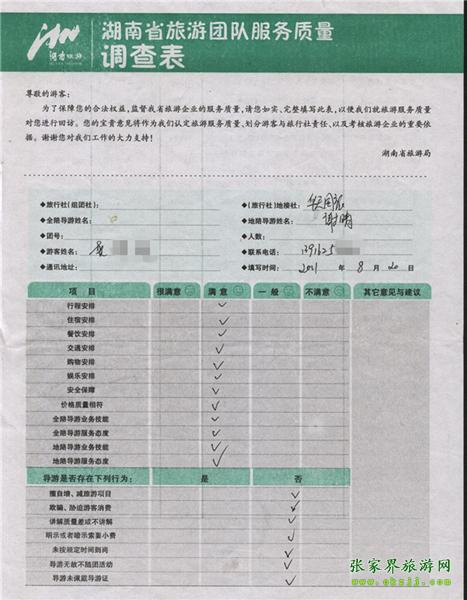 湖南旅游
湖南省旅游团队服务质量
调查表
尊敬的游客:
为了保障您的合法权益,监督我省旅游企业的服务质量,请您如实、完整填写此表,以便我们就旅游服务质量
对您进行回访。您的宝贵意见将作为我们认定旅游服务质量、划分游客与旅行社责任、以及考核旅游企业的重要依
据。谢谢您对我们工作的大力支持!
湖南省旅游局
◆旅行社(组团社): ◆(旅行社)地接社:
◆全陪导游姓名: ◆地陪导游姓名: 谢晴
◆团号: ◆人数:
◆游客姓名: ◆联系电话: 1391625
◆通讯地址: ◆填写时间: 2011 年 8 月 20 日
项 目 很满意 满 意 一 般 不满意 其它意见与建议
行程安排 ✓
住宿安排 ✓
餐饮安排 ✓
交通安排 ✓
购物安排 ✓
娱乐安排 ✓
安全保障 ✓
价格质量相符 ✓
全陪导游业务技能 ✓
全陪导游服务态度 ✓
地陪导游业务技能 ✓
地陪导游服务态度 ✓
导游是否存在下列行为: 是 否
擅自增、减旅游项目 ✓
欺骗、胁迫游客消费 ✓
讲解质量差或不讲解 ✓
明示或者暗示索要小费 ✓
未按规定时间到岗 ✓
导游无故不随团活动 ✓
导游未佩戴导游证 ✓
张家界旅游网
www.okzjj.com